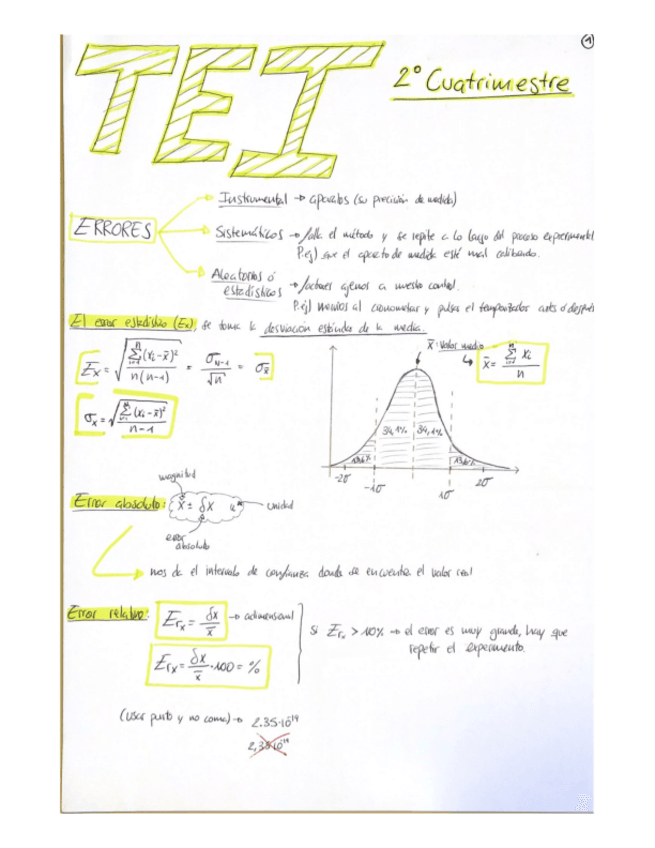 1
TEI
2º Cuatrimestre
Instrumental → aparatos (su precisión de medida)
ERRORES
Sistemáticos → falla el método y se repite a lo largo del proceso experimental
P.ej) que el aparato de medida esté mal calibrado.
Aleatorios ó
estadísticos → factores ajenos a nuestro control.
P.ej) nervios al cronometrar y pulsar el temporizador antes o después
El error estadístico (Ex), se toma la desviación estándar de la media.
x̄: valor medio
Ex = √(∑(xi-x̄)²/n(n-1)) = σn-1/√n = σx̄
x̄ = ∑xi/n
σx = √(∑(xi-x̄)²/n-1)
34,1% 34,1%
13,6% 13,6%
-2σ -1σ 1σ 2σ
magnitud
Error absoluto: x̄ ± δx u
unidad
error
absoluto
nos da el intervalo de confianza donde se encuentra el valor real
Error relativo: Erx = δx/x̄ → adimensional
Si Erx > 10% → el error es muy grande, hay que
repetir el experimento.
Erx = δx/x̄ · 100 = %
(usar punto y no coma) → 2.35·10¹⁹